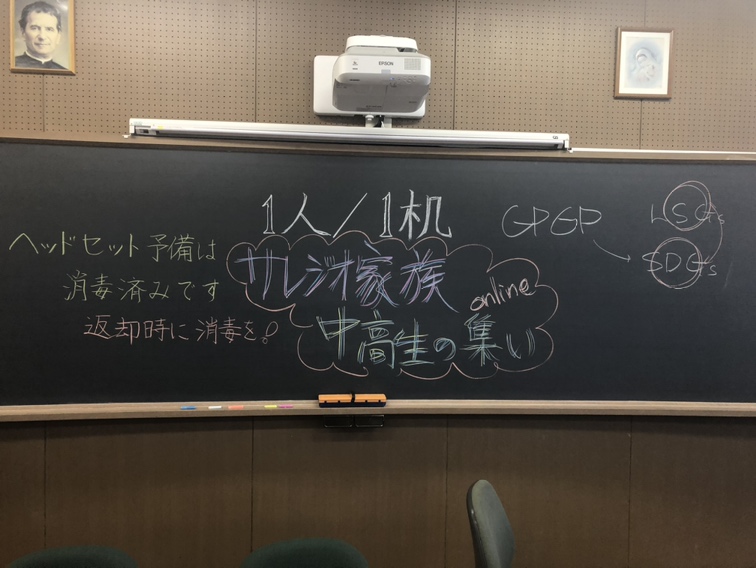 EPSON
1人/1机
ヘッドセット予備は
消毒済みです
返却時に消毒を!
サレジオ家族
online
中高生の集い
GPGP
LSGs
SDGs